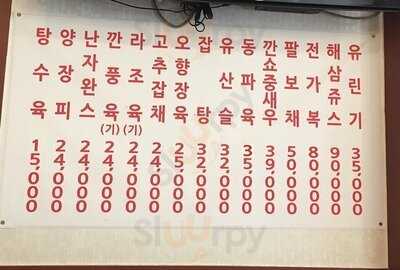 탕수육 15,000
양장피 24,000
난자완스 24,000
깐풍육(기) 24,000
라조육(기) 24,000
고추잡채 24,000
오향장육 25,000
잡탕 32,000
유산슬 32,000
동파육 35,000
깐쇼중새우 39,000
팔보채 50,000
전가복 80,000
해삼쥬스 90,000
유린기 35,000
sluurpy
sluurpy